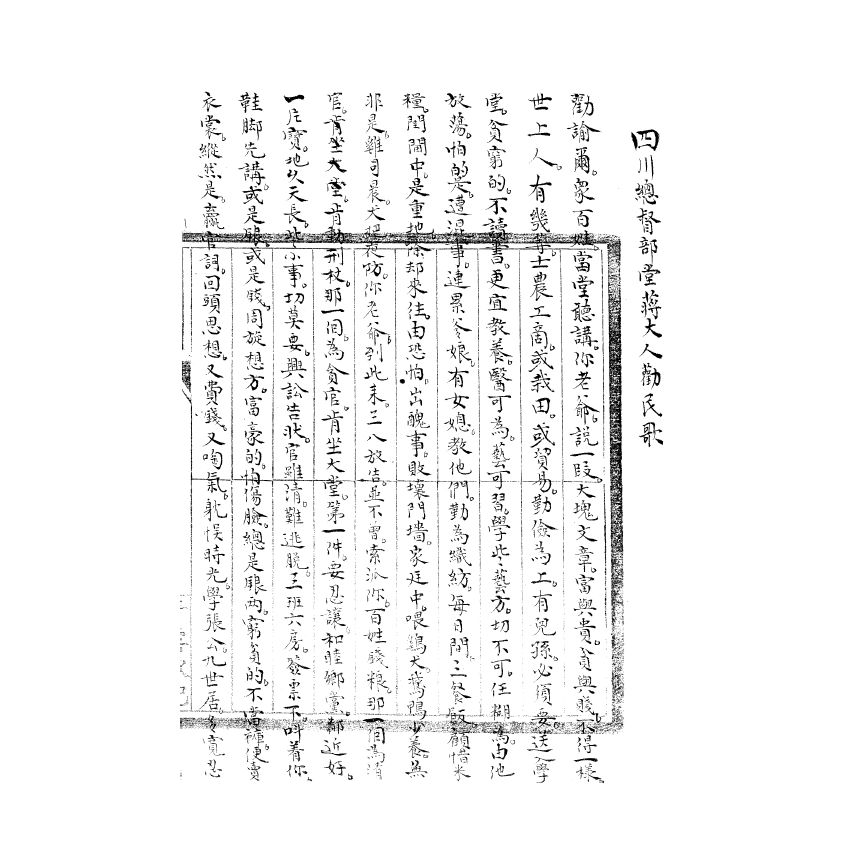 四川總督部堂蔣大人勸民歌
勸諭爾。衆百姓。當堂聽講。你老爺。説一段。大塊文章。富與貴。貧與賤。不得一樣。
世上人。有幾等。士農工商。或栽田。或貿易。勤儉為上。有兒孫。必須要。送入學
堂。貧窮的。不讀書。更宜教養。醫可為。藝可習。學些藝方。切不可。任糊為。由他
放蕩。怕的是。遭渾事。連累爹娘。有女媳。教他們。勤為織紡。每日間。三餐飯。顧惜米
糧。閨閫中。是重地。除却來往。由恐怕。出醜事。敗壞門墻。家庭中。喂鷄犬。鵞鴨少養。無
非是。雞司晨。犬把夜防。你老爺。到此來。三八放告。並不曾。索派你。百姓錢粮。那一個。為清
官。肯坐大堂。肯動刑杖。那一個。為貪官。肯坐大堂。第一件。要忍讓。和睦鄉黨。鄰近好。
一片寶。地久天長。些小事。切莫要。興訟告狀。官雖清。難逃脱。三班六房。發票下。叫着你。
鞋脚先講。或是賬。或是錢。周旋想方。富豪的。怕傷臉。總是銀兩。窮貧的。不當褲。便賣
衣裳。縱然是。贏官詞。回頭思想。又賞錢。又啕氣。躭悮時光。學張公。九世居。多寬忍